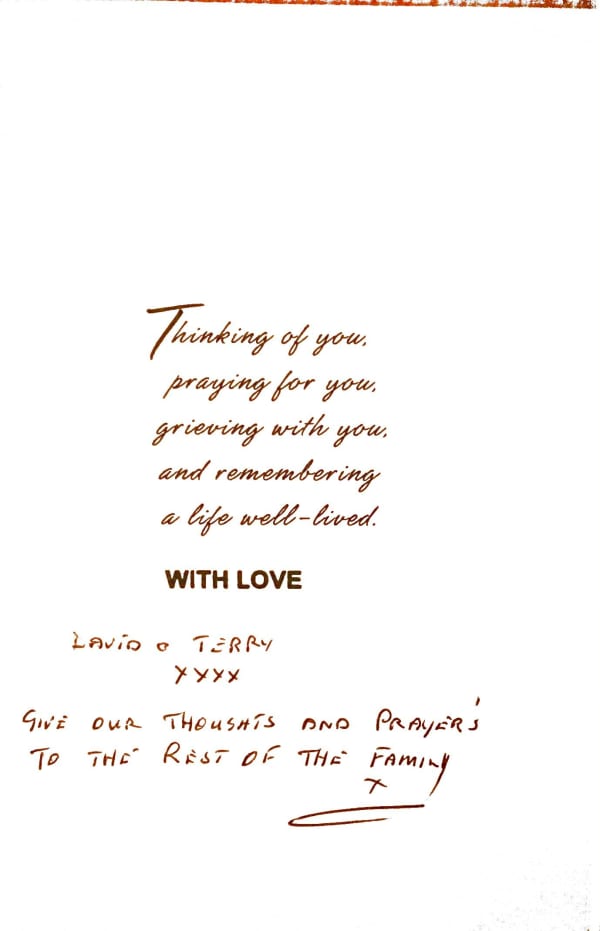 Thinking of you,
praying for you,
grieving with you,
and remembering
a life well-lived.
WITH LOVE
DAVID & TERRY
XXXX
GIVE OUR THOUGHTS AND PRAYER'S
TO THE REST OF THE FAMILY
X